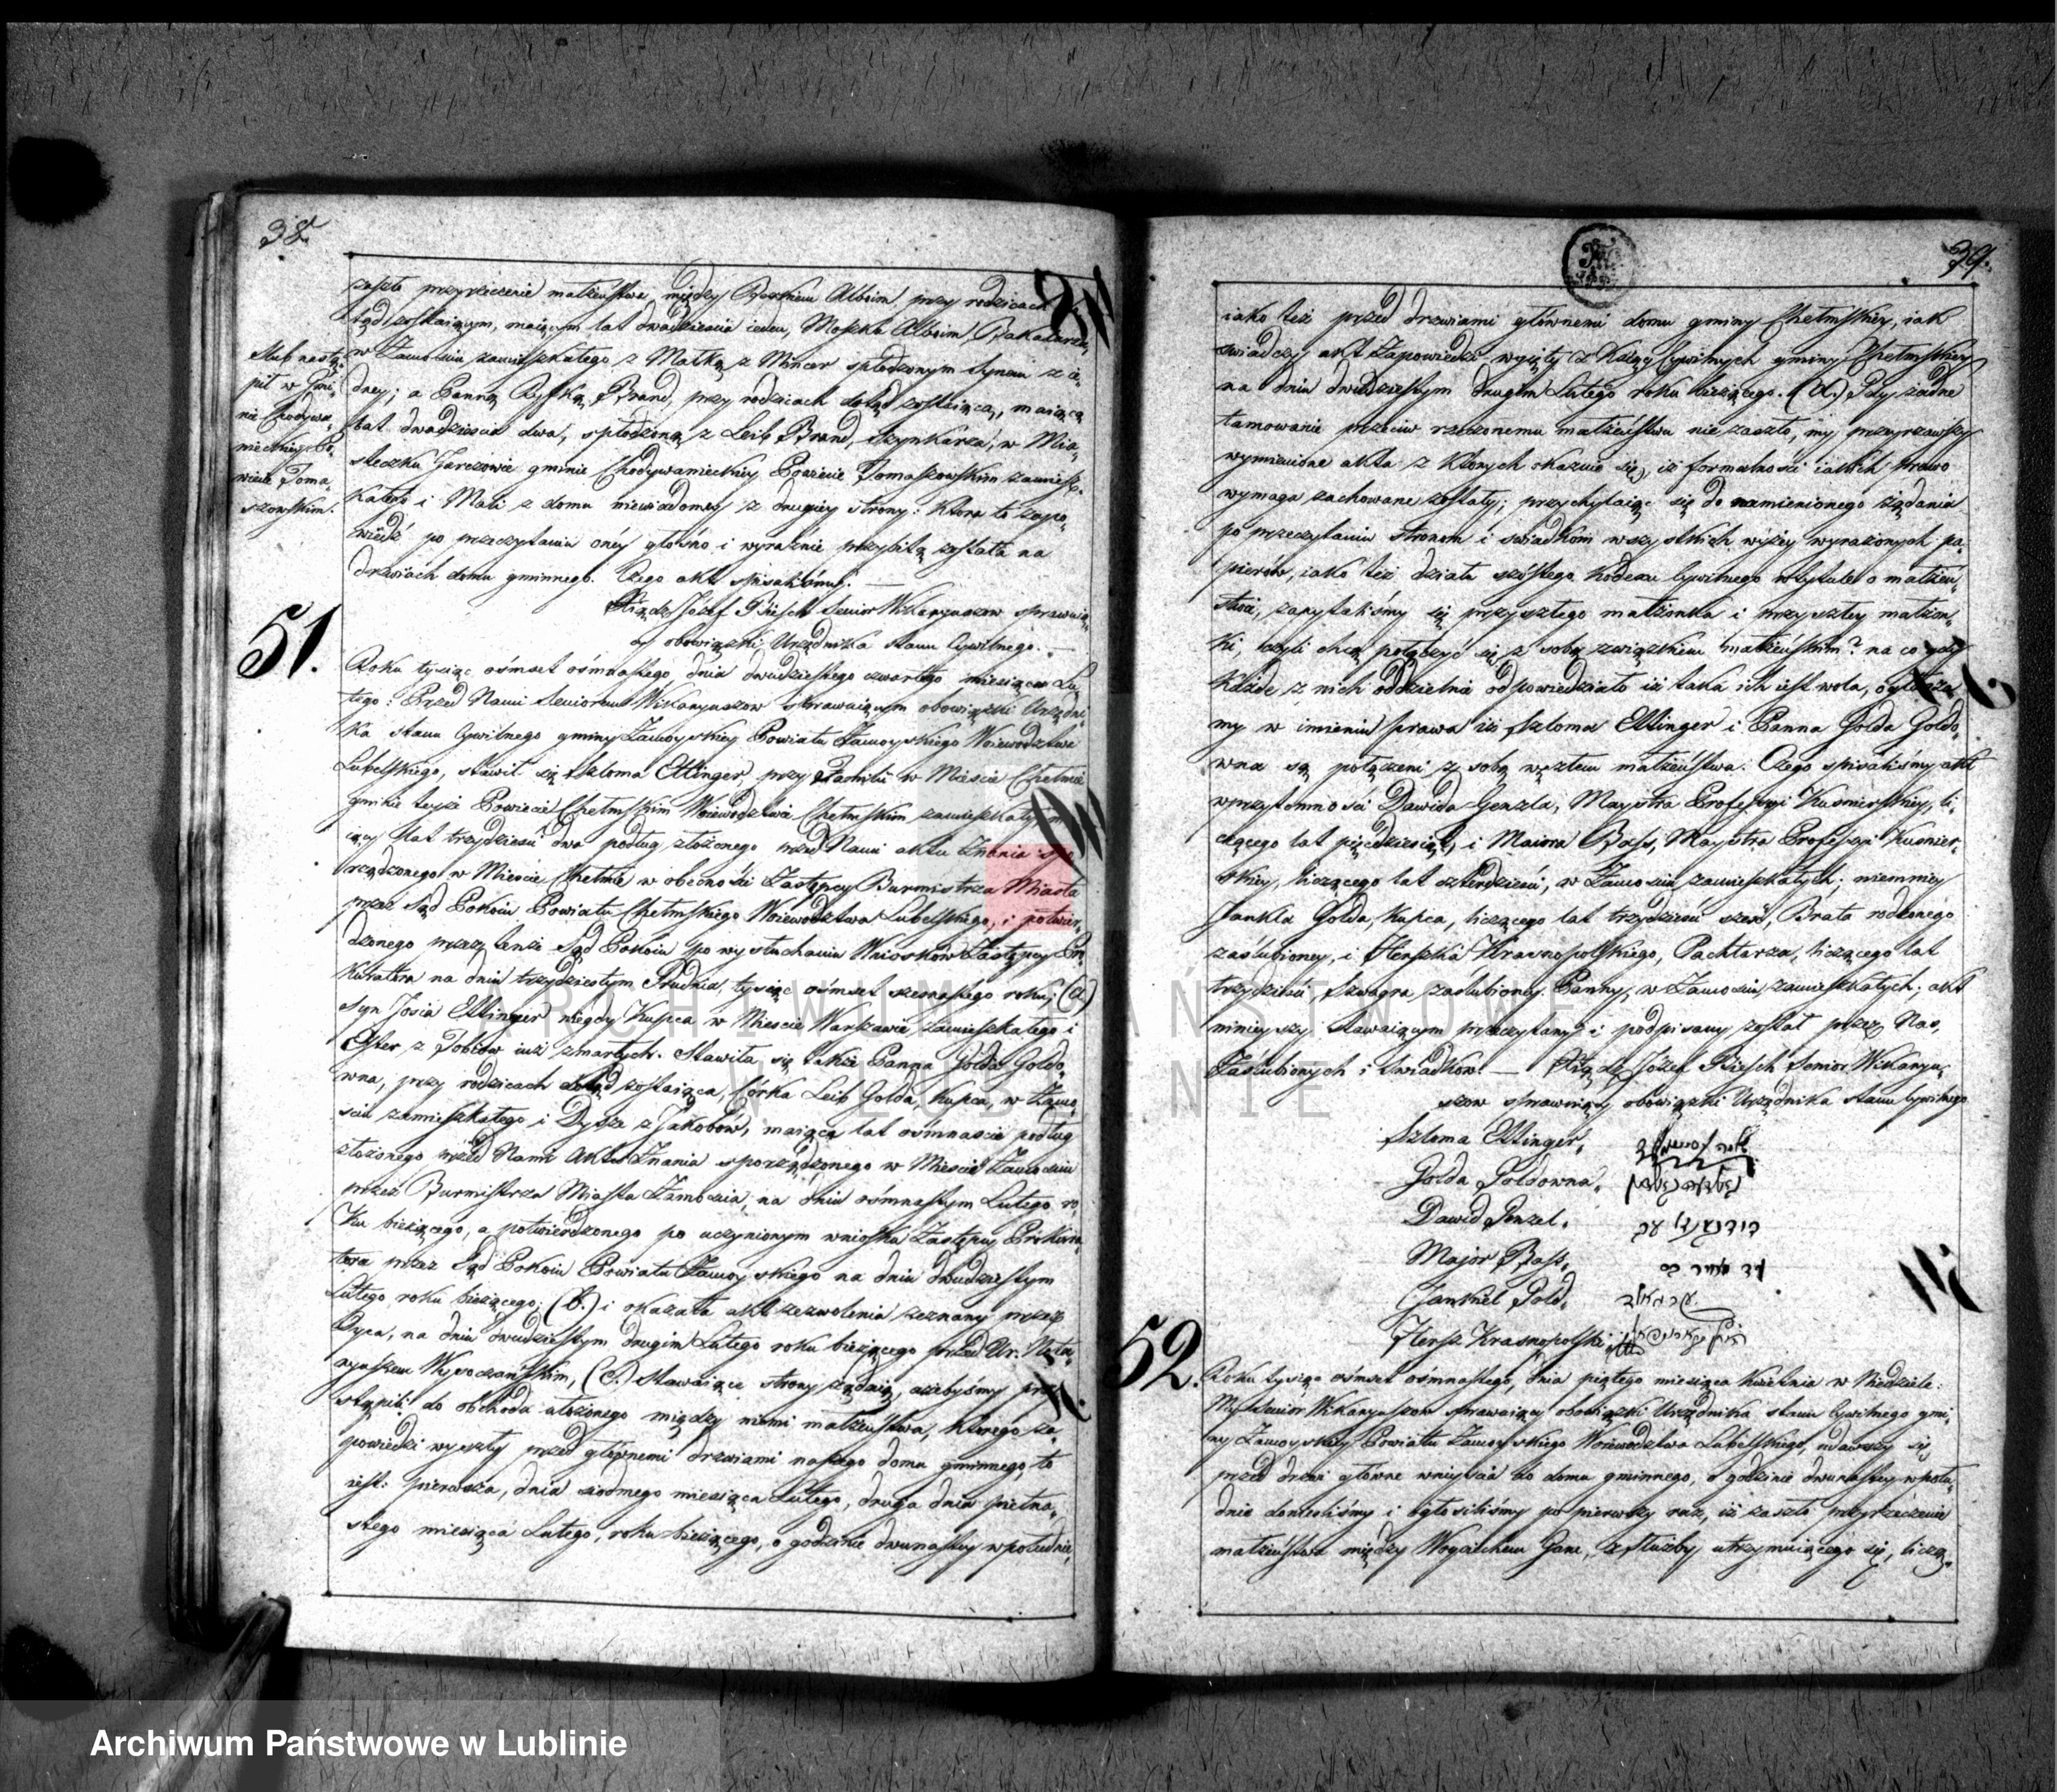 38.
zaszło przyrzeczenie małżeństwa między Berkiem Alboim przy rodzicach
tąd zostaiącym, maiącym lat dwadzieścia ieden, Moszka Alboim Bakałarza,
w Zamościu zamieszkałego z Matką z Mincer spłodzonym synem z ie,
dney; a Panną Ryfką Brand, przy rodzicach dotąd zostaiącą, maiącą
lat dwadzieścia dwa, spłodzoną z Leib Brand, Szynkarza, w Mia,
steczku Jarczowie gminie Chodywanieckiey Powiecie Tomaszowskim zamiesz,
kałego i Mali z domu niewiadomey z drugiey strony: która to zapo,
wiedź po przeczytaniu oney głośno i wyraźnie przybitą została na
drzwiach domu gminnego. Czego akt spisaliśmy. —
Xiądz Józef Piesch Senior Wikaryuszow sprawuią,
cy obowiązki Urzędnika stanu Cywilnego. —
Slub nastą,
pił w Gmi,
nie Chodywa,
nieckiey Po,
wiecie Toma,
szowskim.
51.
Roku tysiąc ośmset ośmnastego, dnia dwudziestego czwartego miesiąca Lu,
tego: Przed Nami Seniorem Wikaryuszow sprawuiącym obowiązki Urzędni,
ka stanu Cywilnego gminy Zamoyskiey Powiatu Zamoyskiego Woiewództwa
Lubelskiego, stawił się Szloma Ettinger, przy Familii w Mieście Chełmie
gminie teyże Powiecie Chełmskim Woiewództwie Chełmskim zamieszkały, ma
iący lat trzydzieści dwa podług złożonego przed Nami aktu Znania spo
rządzonego w Mieście Chełmie w obecności Zastępcy Burmistrza Miasta
przez Sąd Pokoiu Powiatu Chełmskiego Woiewództwa Lubelskiego, i potwier,
dzonego przez tenże Sąd Pokoiu po wysłuchaniu Wniosków Zastępcy Pro
kuratora na dniu trzydziestym Grudnia, tysiąc ośmset szesnastego roku; (a)
Syn Josia Ettinger niegdy Kupca w Mieście Warszawie zamieszkałego i
Ester z Tobiów iuż zmarłych. Stawiła się także Panna Gołda Gołdo,
wna, przy rodzicach dotąd zostaiąca, Córka Leib Gołda, Kupca, w Zamo,
ściu zamieszkałego i Dysze z Jakobów, maiąca lat ośmnaście podług
złożonego przed Nami Aktu Znania sporządzonego w Mieście Zamościu
przez Burmistrza Miasta Zamościa, na dniu ośmnastym Lutego ro,
ku bieżącego, a potwierdzonego po uczynionym wniosku Zastępcy Prokura,
tora przez Sąd Pokoiu Powiatu Zamoyskiego na dniu dwudziestym
Lutego roku bieżącego; (b.) i okazała akt zezwolenia zeznany przez
Oyca, na dniu dwudziestym drugim Lutego roku bieżącego przed Ur. Nota,
ryuszem Wysoczańskim, (c.) Stawaiące strony żądaią, ażebyśmy przy
stąpili do obchodu ułożonego między niemi małżeństwa, którego za,
powiedzi wyszły przed głównemi drzwiami naszego domu gminnego, to
iest: pierwsza, dnia siódmego miesiąca Lutego, druga dnia piętna,
stego miesiąca Lutego, roku bieżącego, o godzinie dwunastey wpołudnie,
39.
iako też przed drzwiami głównemi domu gminy Chełmskiey, iak
świadczy akt Zapowiedzi wyięty z Xsięg Cywilnych gminy Chełmskiey
na dniu dwudziestym drugim Lutego roku bieżącego. (d.) Gdy żadne
tamowanie przeciw rzeczonemu małżeństwu nie zaszło, my przeyrzawszy
wymienione akta z których okazuie się, iż formalności iakich prawo
wymaga zachowane zostały; przychylaiąc się do namienionego żądania
po przeczytaniu stronom i świadkom wszystkich wyżey wyrażonych pa,
pierów, iako też działu szóstego Kodexu Cywilnego w tytule o małżeń,
stwie, zapytaliśmy się przyszłego małżonka i przyszłey małżon,
ki, ieżeli chcą połączyć się z sobą związkiem małżeńskim? na co gdy
każde z nich oddzielnie odpowiedziało iż taka ich iest wola, ogłasza
my w imieniu prawa iż Szloma Ettinger i Panna Gołda Gołdo,
wna są połączeni z sobą węzłem małżeństwa. Czego spisaliśmy akt
wprzytomności Dawida Genzla, Maystra Professyi Kuśnierskiey, li,
czącego lat pięćdziesiąt, i Maiora Bass, Maystra Professyi Kuśnier,
skiey, liczącego lat czterdzieści, w Zamościu zamieszkałych; niemniey
Jankla Gołda, Kupca, liczącego lat trzydzieści sześć, Brata rodzonego
zaślubioney, i Herszka Krasnopolskiego, Pachtarza, liczącego lat
trzydzieści, Szwagra zaślubioney Panny, w Zamościu zamieszkałych; akt
ninieyszy stawaiącym przeczytany i podpisany został przez Nas,
Zaślubionych i świadków. — Xiądz Józef Piesch Senior Wikaryu,
szow sprawuiący obowiązki Urzędnika stanu Cywilnego
Szloma Ettinger,
Gołda Gołdowna.
Dawid Genzel.
Major Bass.
Jankiel Gold.
Hersz Krasnopolski
52.
Roku tysiąc ośmset ośmnastego, dnia piątego miesiąca Kwietnia w Niedziele:
My Senior Wikaryuszow sprawuiący obowiązki Urzędnika stanu Cywilnego gmi,
ny Zamoyskiey Powiatu Zamoyskiego Woiewództwa Lubelskiego, udawszy się
przed drzwi główne wniyścia do domu gminnego, o godzinie dwunastey wpołu,
dnie donieśliśmy i ogłosiliśmy po pierwszy raz, iż zaszło przyrzeczenie
małżeństwa między Woyciechem Gane, z służby utrzymuiącego się, liczą,
ARCHIWUM PAŃSTWOWE
W LUBLINIE
Archiwum Państwowe w Lublinie